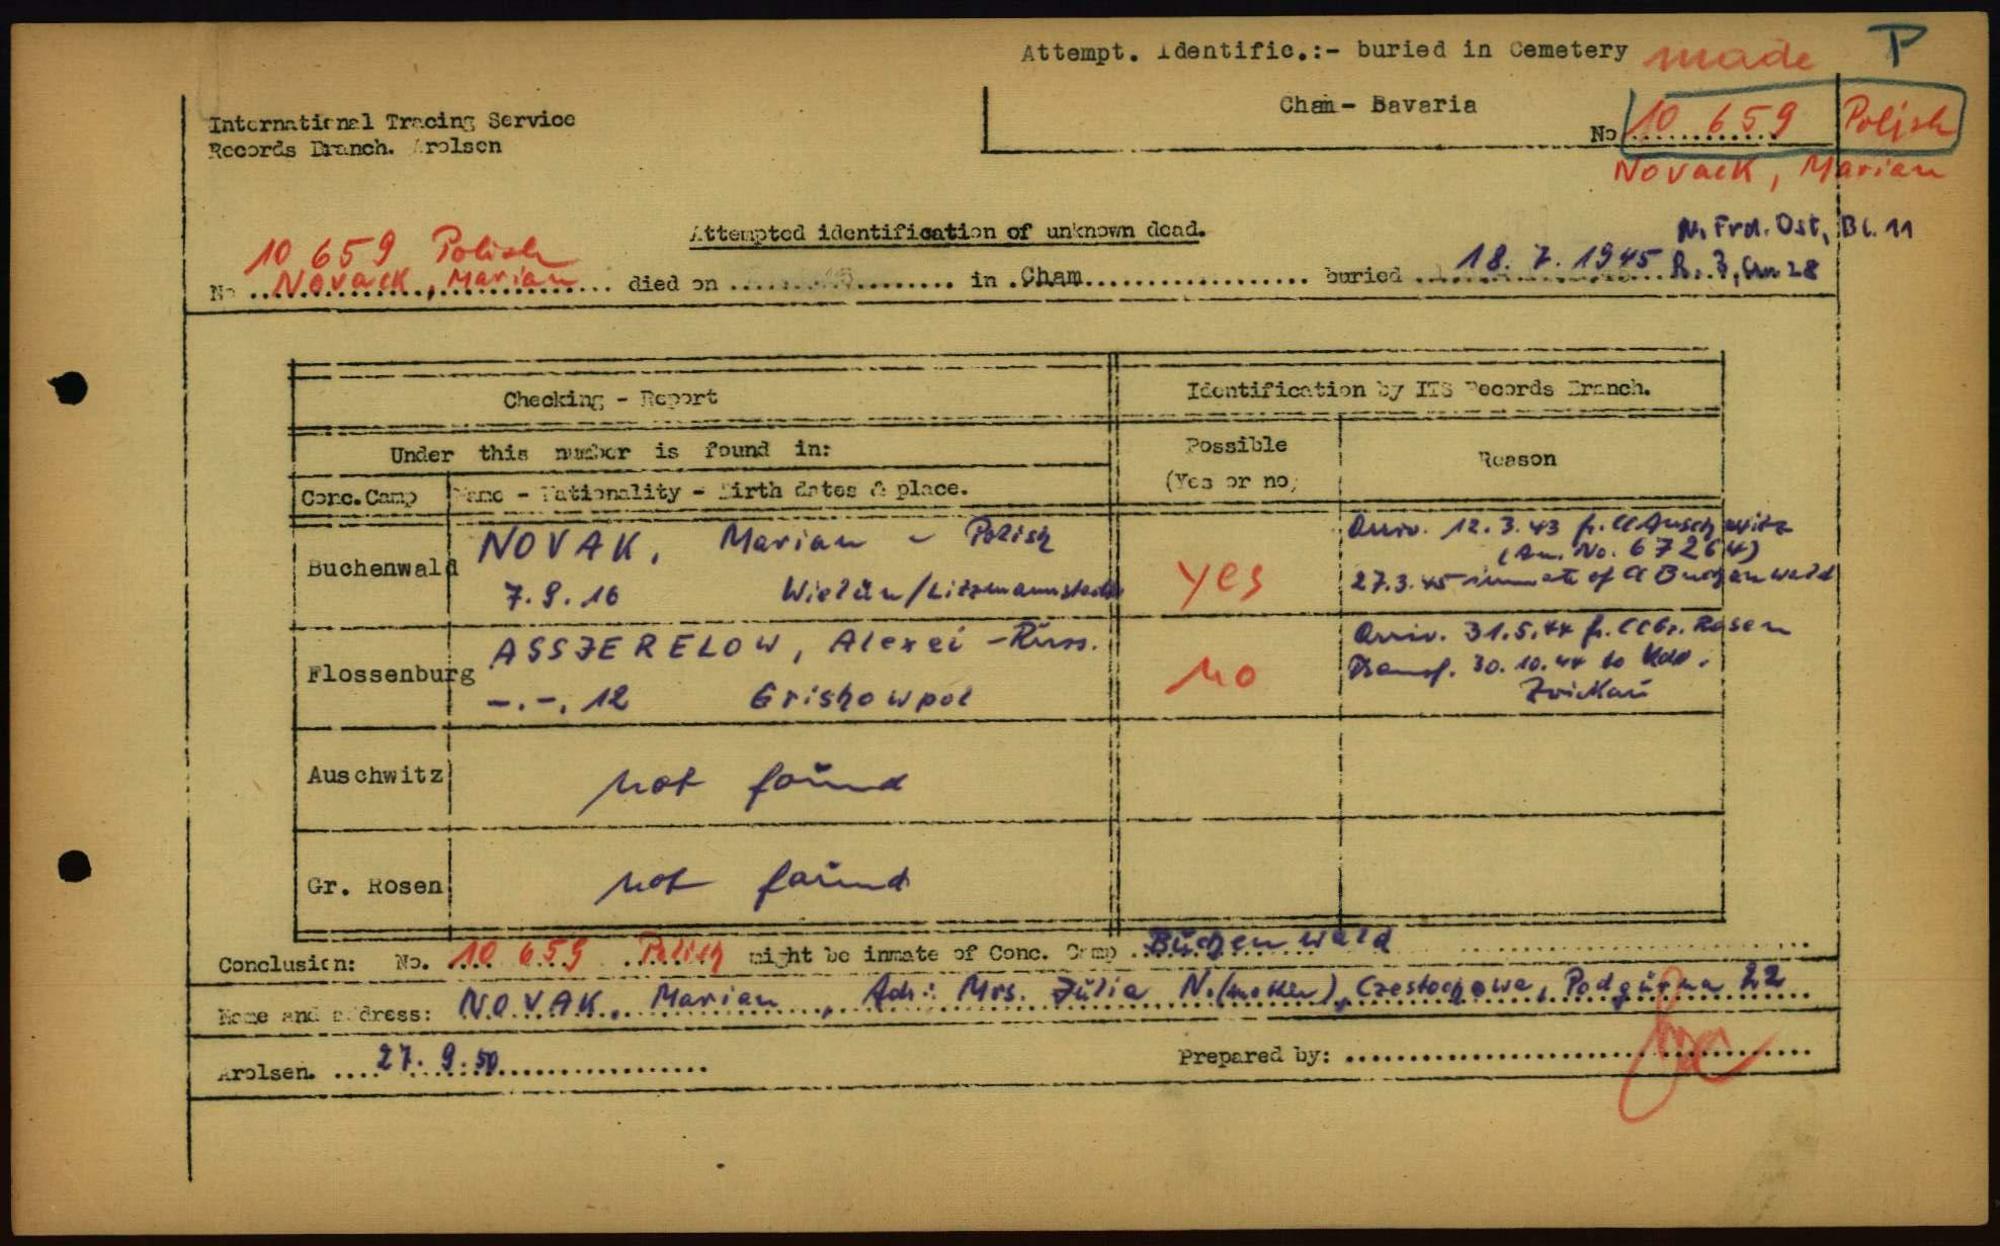 Attempt. Identific.:- buried in Cemetery made P
Cham - Bavaria
No 10 659 Polish
Novack, Marian
International Tracing Service
Records Branch. Arolsen
Attempted identification of unknown dead.
N. Frd. Ost, Bl. 11
10 659 Polish
No Novack, Marian died on in Cham buried 18. 7. 1945 R. 3, Gr. 28
Checking - Report
Identification by ITS Records Branch.
Under this number is found in:
Possible
(Yes or no)
Reason
Conc. Camp
Name - Nationality - Birth dates & place.
Buchenwald
NOVAK, Marian - Polish
7. 9. 16 Wielün/Litzmannstadt
yes
Arriv. 12. 3. 43 fr. CC Auschwitz
(Au. No. 67264)
27. 3. 45 inmate of CC Buchenwald
Flossenburg
ASSZERELOW, Alexei - Russ.
-.-. 12 Grishowpol
no
Arriv. 31. 5. 44 fr. CC Gr. Rosen
Transf. 30. 10. 44 to Kdo.
Zwickau
Auschwitz
not found
Gr. Rosen
not found
Conclusion: No. 10 659 Polish might be inmate of Conc. Camp Buchenwald
Name and address: NOVAK, Marian, Adr.: Mrs. Julia N. (mother), Czestochowa, Podgórna 22
Arolsen. 27. 9. 50
Prepared by: